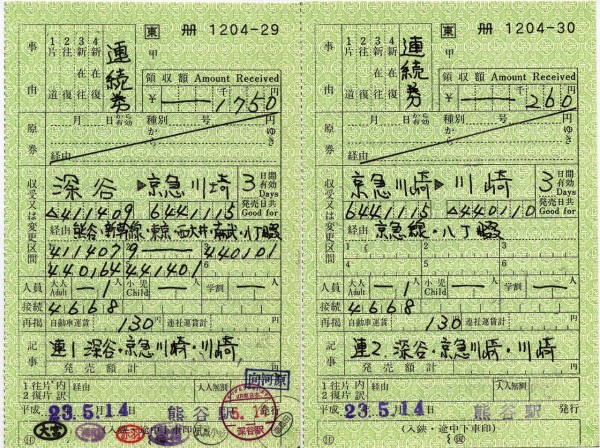 東 冊 1204-29
事由
1片道 2往復 3新在往 4新在復
連続券
甲
領収額 Amount Received
¥ 1750 千 円
原券
月 日から有効 種別 号 から ゆき 円
経由
収受又は変更区間
深谷 ▶ 京急川崎
3 日間有効 Days
発売日共 Good for
△411409 6441115
経由 熊谷・新幹線・東京・西大井・武蔵・八丁畷
411407 440101
440164 441401
人員 大人 Adult 1人 小児 Child 人 学割 人
接続 4668
再掲 自動車運賃 130円 連社運賃計 円
記事 連1. 深谷・京急川崎・川崎
発売額計
1往片 2復片 内訳 経由 大人無割
向河原
平成 23.5.14 熊谷駅 発行
5.14
深谷駅
(入鋏・途中下車印)
大宮
東 冊 1204-30
事由
1片道 2往復 3新在往 4新在復
連続券
甲
領収額 Amount Received
¥ 260 千 円
原券
月 日から有効 種別 号 から ゆき 円
経由
収受又は変更区間
京急川崎 ▶ 川崎
3 日間有効 Days
発売日共 Good for
6441115 △440110
経由 京急線・八丁畷
1 2 3
4 5 6
人員 大人 Adult 1人 小児 Child 人 学割 人
接続 4668
再掲 自動車運賃 130円 連社運賃計 円
記事 連2. 深谷・京急川崎・川崎
発売額計
1往片 2復片 内訳 経由 大人無割
平成 23.5.14 熊谷駅 発行
(入鋏・途中下車印)